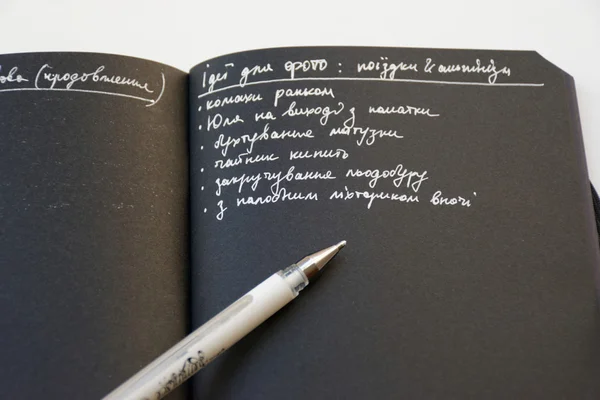 (продовження)
Ідеї для фото: поїздки &
• комахи ранком
• Юля на виході з палатки
• бухтування мотузки
• чайник кипить
• закручування льодобуру
• з налобним ліхтариком вночі